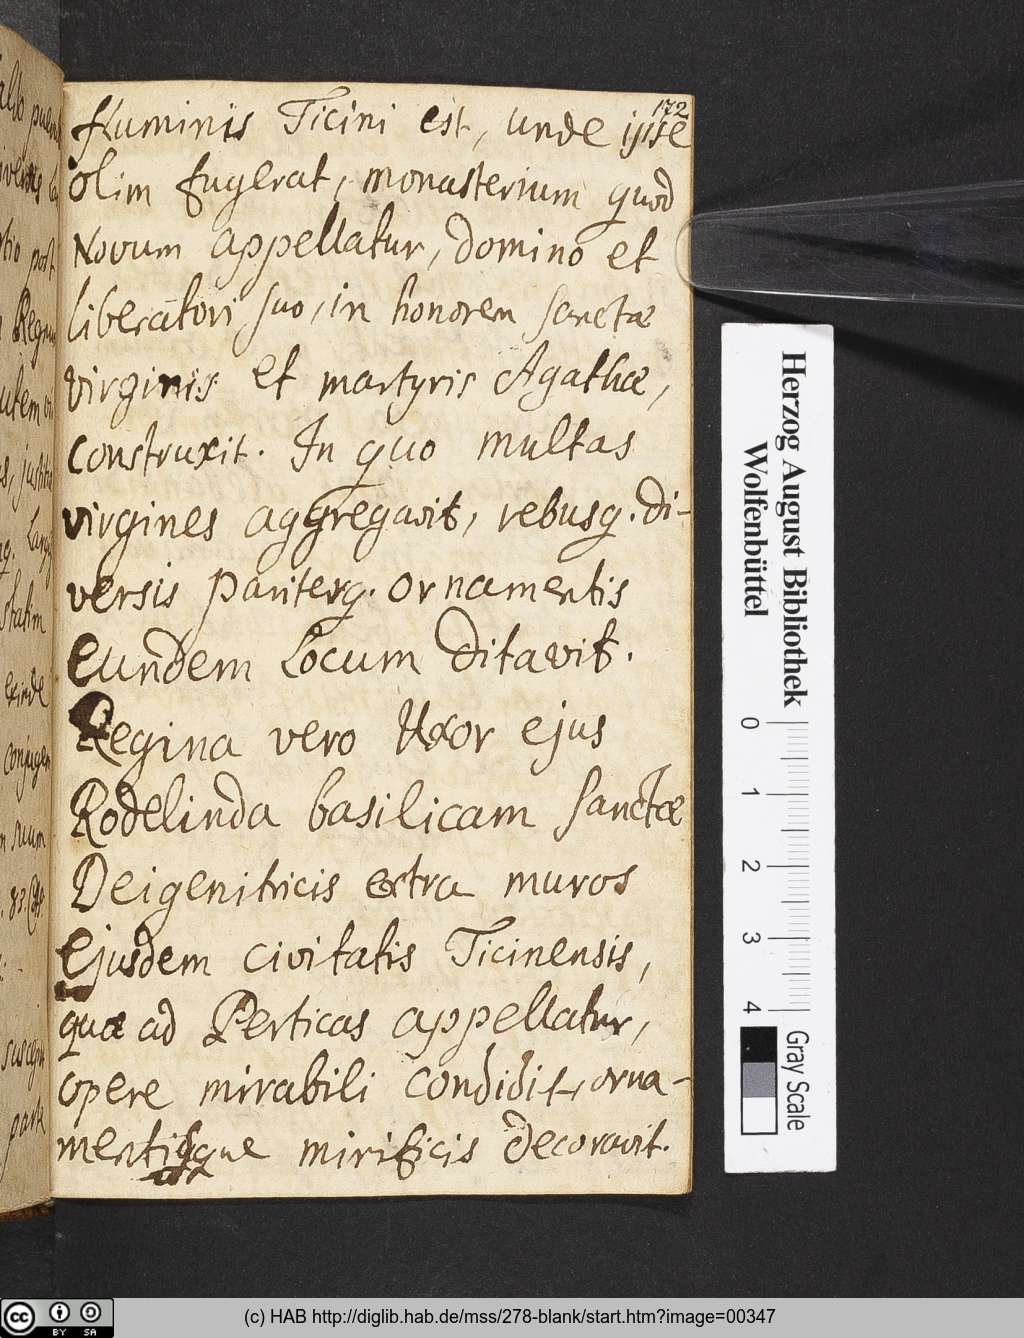 172
fluminis Ticini est, unde ipse
olim fugerat, monasterium quod
Novum appellatur, domino et
liberatori suo, in honorem sanctæ
virginis et martyris Agathæ,
construxit. In quo multas
virgines aggregavit, rebusq. di-
versis pariterq. ornamentis
eundem Locum Ditavit.
Regina vero Uxor ejus
Rodelinda basilicam sanctæ
Deigenitricis extra muros
Ejusdem civitatis Ticinensis,
quæ ad Perticas appellatur,
opere mirabili condidit, orna-
mentisque mirificis decoravit.
post
Regnum
statim
exinde
conjugem
suum
83.
parte
Herzog August Bibliothek
Wolfenbüttel
0 1 2 3 4
Gray Scale
cc BY SA
(c) HAB http://diglib.hab.de/mss/278-blank/start.htm?image=00347